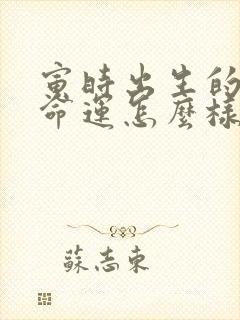 寅時出生的
命運怎麼樣
蘇志東